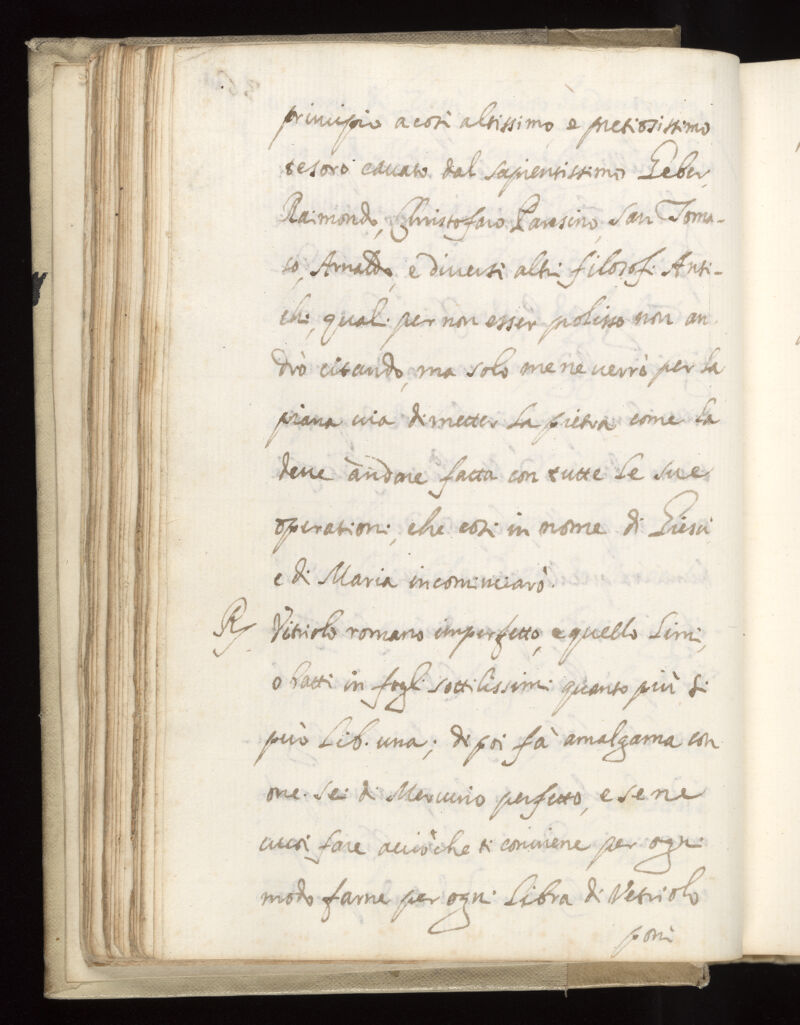 principio a così altissimo, e pretiosissimo
tesoro cavato dal sapientissimo Geber,
Raimondo, Christofaro Parisino, San Toma-
so, Arnaldo, e diversi altri filosofi Anti-
chi, quali per non esser polisso non an
drò citando, ma solo me ne verrò per la
piana via di metter la pietra come la
deve andare fatta con tutte le sue
operationi, che così in nome di Giesù
e di Maria incominciarò.
℞ Vitriolo romano imperfetto, e quello limi,
o batti in fogli sottilissimi quanto più si
può Lib. una; di poi fà amalgama con
one. sei di Mercurio perfetto, e se ne
vuoi fare acciòche ti conviene per ogni
modo farne per ogni Libra di Vetriolo
poni